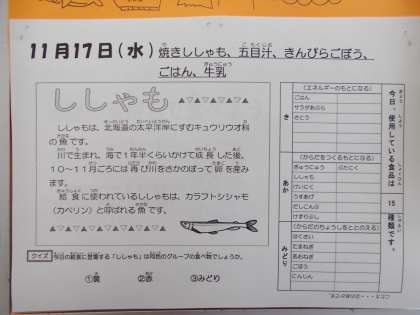 11月17日(水) 焼きししゃも、五目汁、きんぴらごぼう、
ごはん、牛乳
ししゃも
ししゃもは、北海道の太平洋岸にすむキュウリウオ科
の魚です。
川で生まれ、海で1年半くらいかけて成長した後、
10~11月ごろには再び川をさかのぼって卵を産み
ます。
給食に使われているししゃもは、カラフトシシャモ
(カペリン)と呼ばれる魚です。
クイズ 今日の給食に登場する「ししゃも」は何色のグループの食べ物でしょうか。
①黄 ②赤 ③みどり
き
(エネルギーのもとになる)
ごはん
サラダあぶら
さとう
あか
(からだをつくるもとになる)
ぎゅうにゅう
ししゃも
けいにく
うすあげ
だしこんぶ
けずりぶし
みどり
(からだのちょうしをととのえる)
はくさい
たまねぎ
あおねぎ
ごぼう
にんじん
今日、使用している食品は
15
種類です。